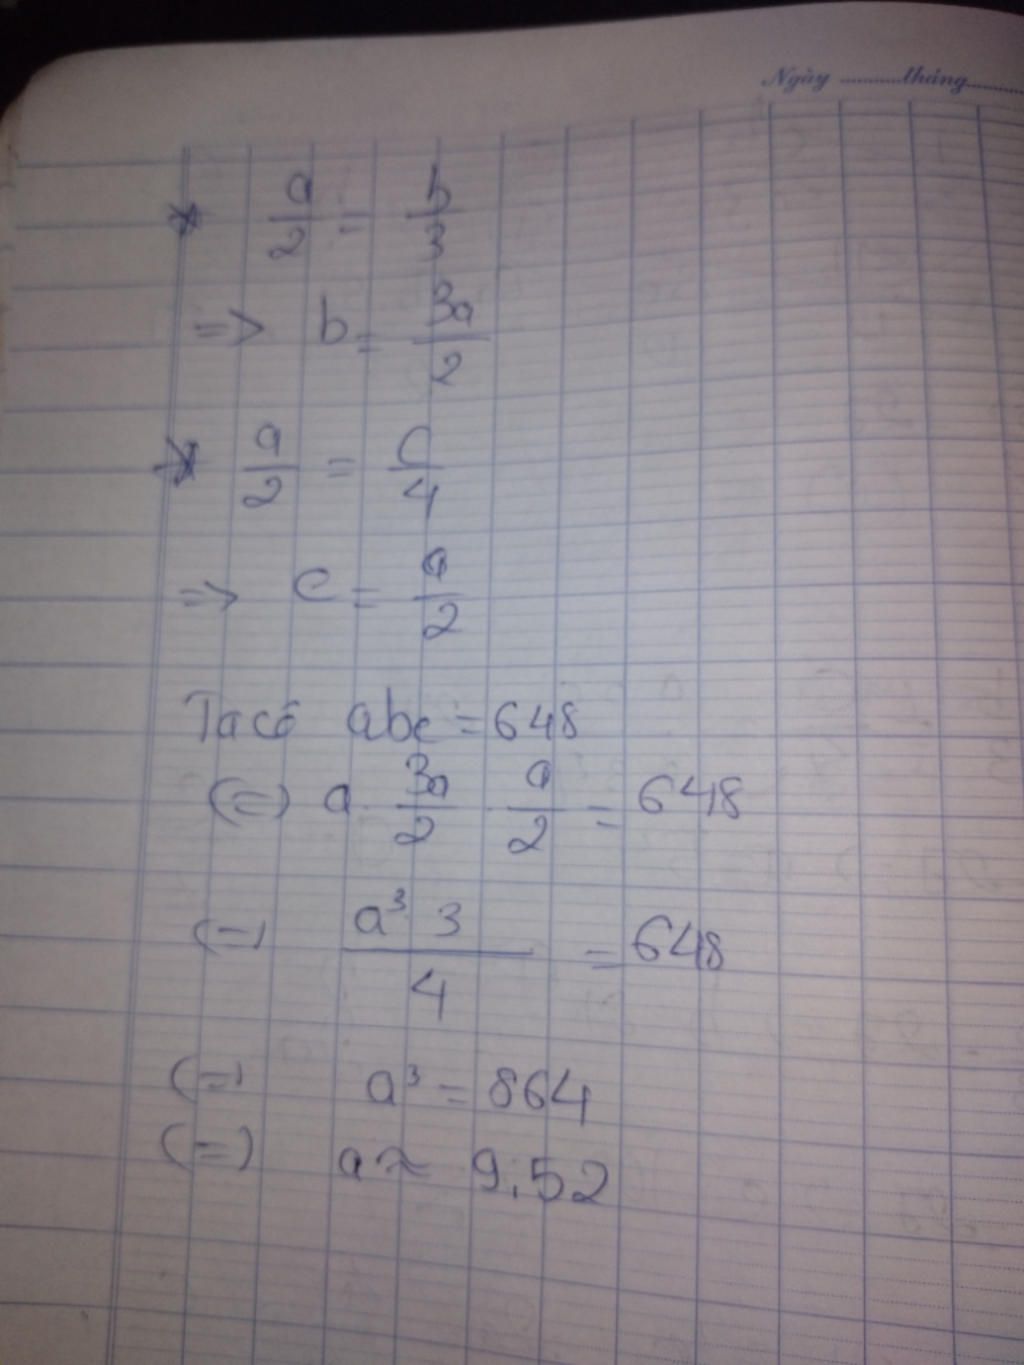 Ngày ........... tháng ...........
* a/2 = b/3
=> b = 3a/2
* a/2 = c/4
=> c = a/2
Ta có abc = 648
(=) a . 3a/2 . a/2 = 648
(=) a³ 3/4 = 648
(=) a³ = 864
(=) a ≈ 9,52